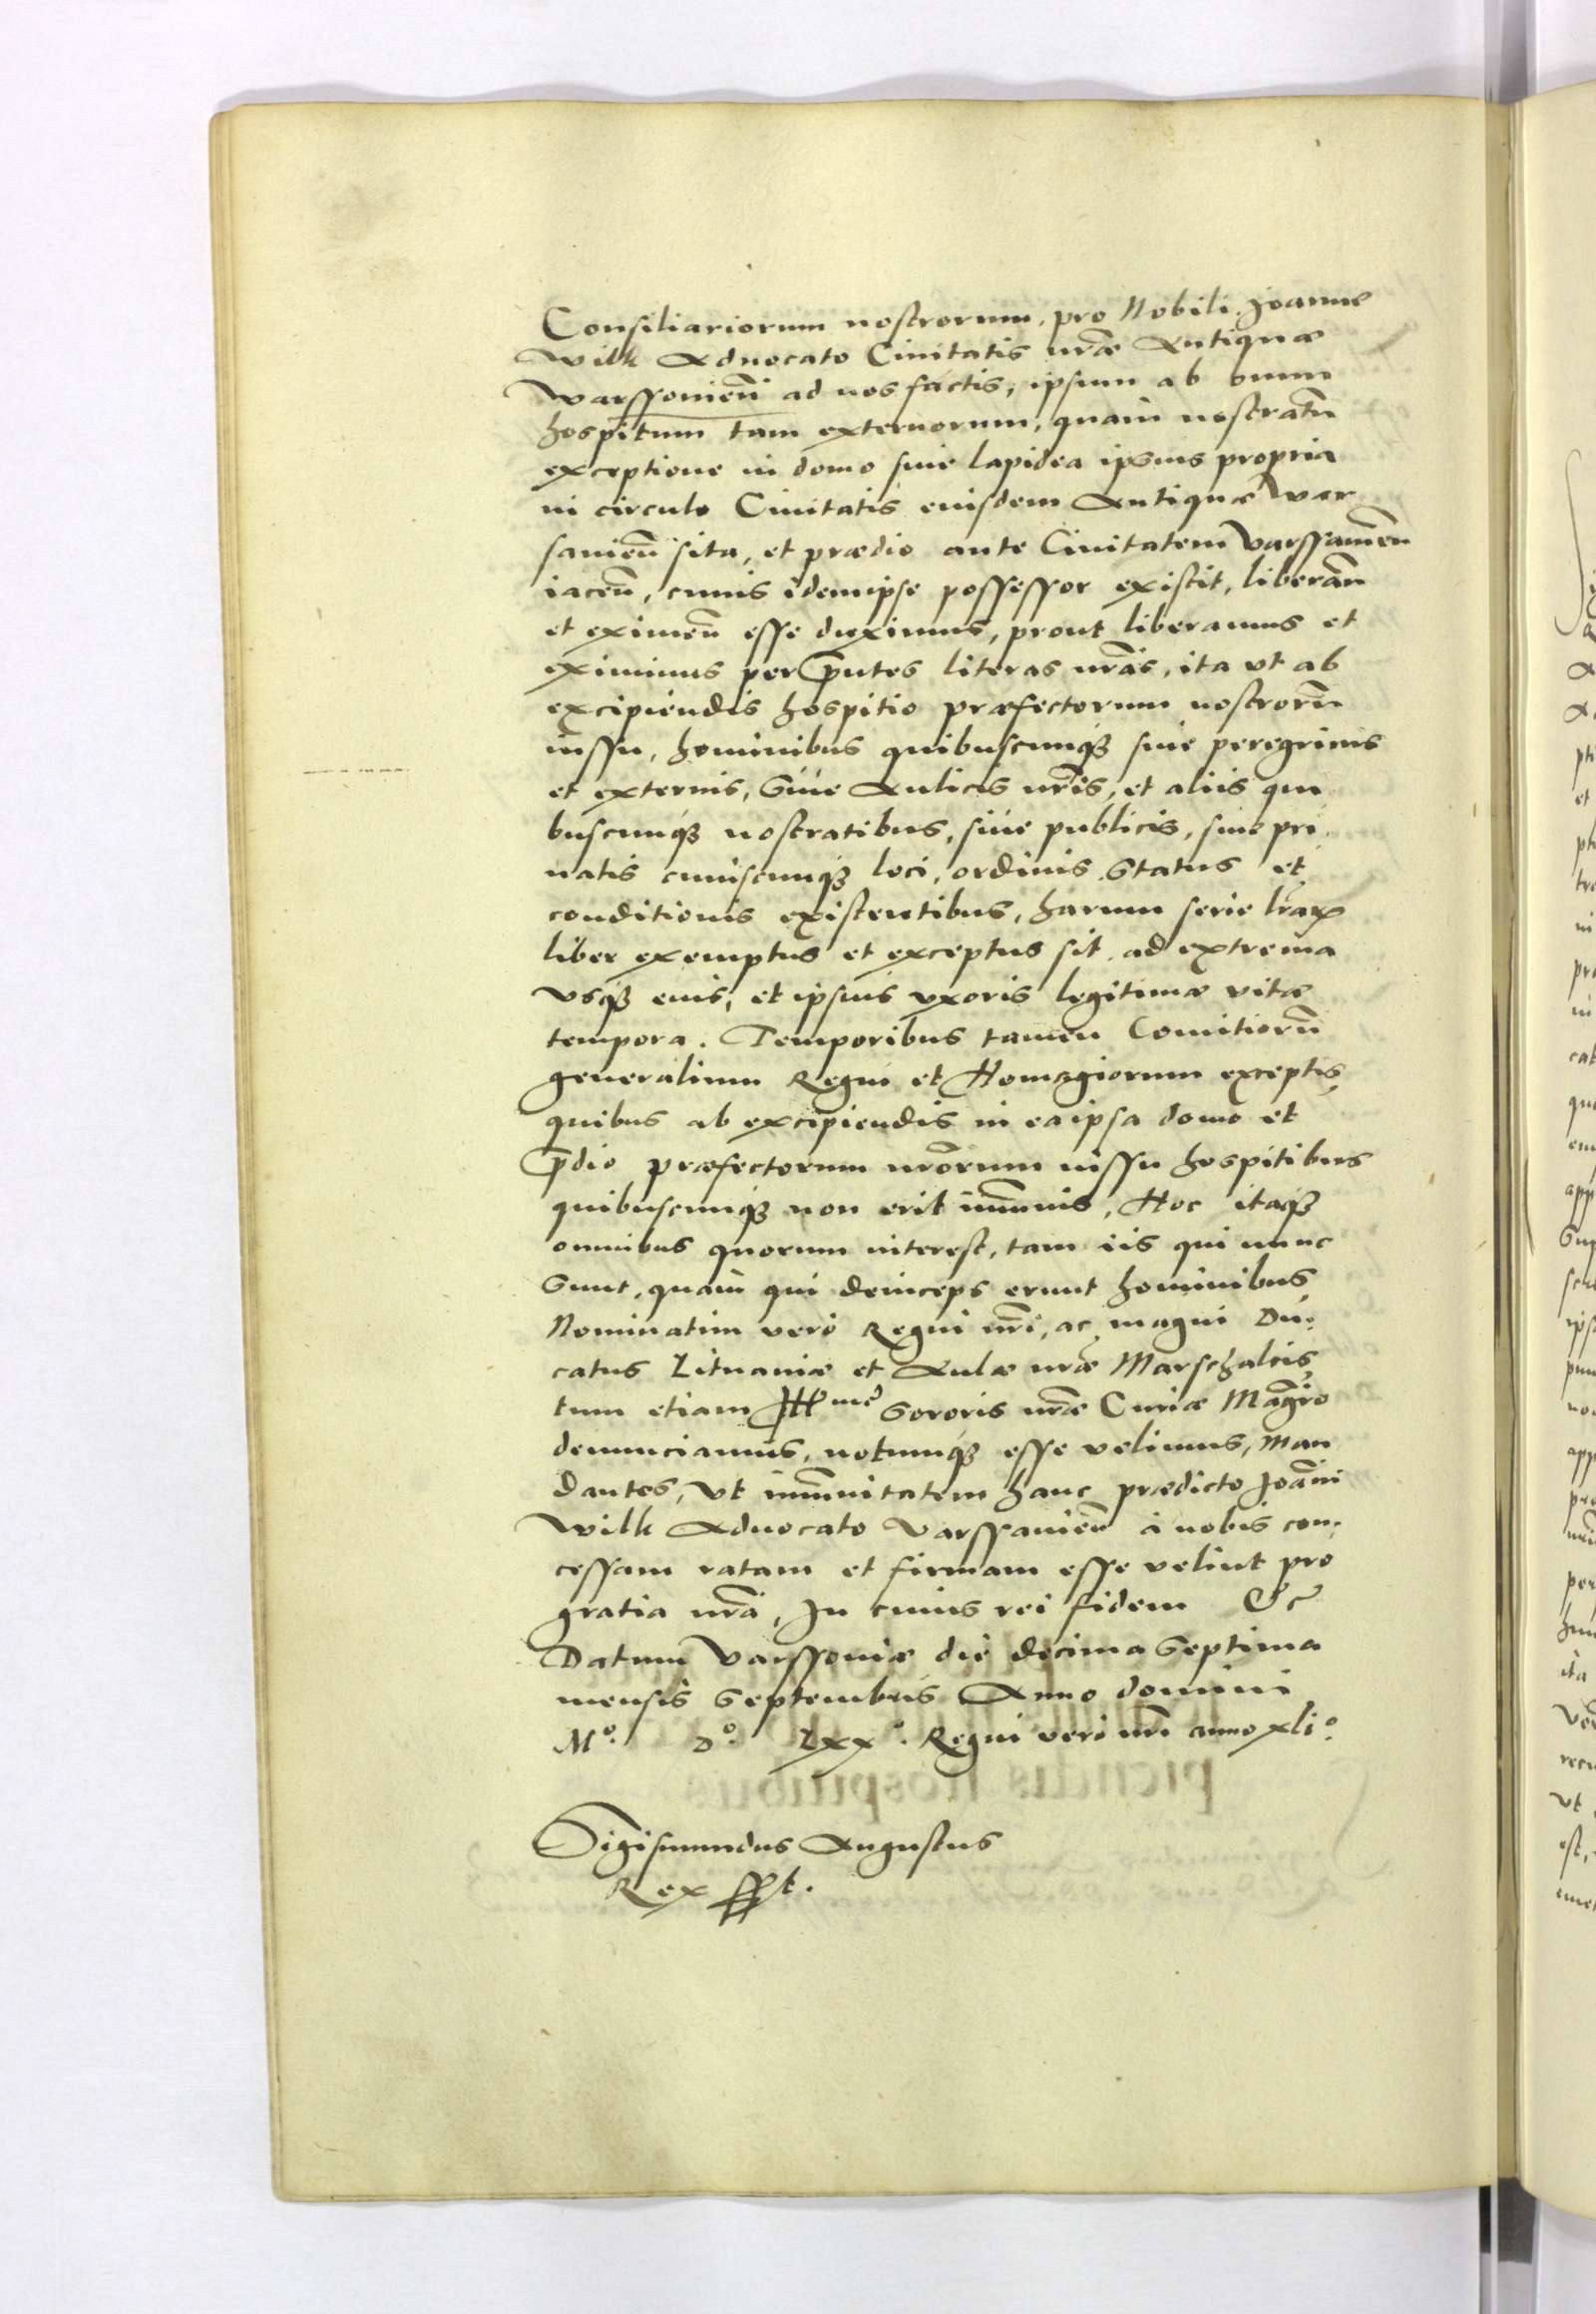 Consiliariorum nostrorum, pro Nobili Joanne
Wilk Aduocato Ciuitatis nrae Antiquae
Warssouien ad nos factis, ipsum ab omni
hospitum tam externorum, quam nostratu
exceptione in domo siue lapidea ipsius propria
in circulo Ciuitatis eiusdem Antiquae Var
sauien sita, et praedio ante Ciuitatem Varssauien
iacen, cuius idemipse possessor existit, liberan
et eximen esse duximus, prout liberamus et
eximimus per pntes literas nras, ita vt ab
excipiendis hospitio praefectorum nostroru
iussu, hominibus quibuscunq siue peregrinis
et externis, Siue Aulicis nris, et aliis qui
buscunq nostratibus, siue publicis, siue pri
uatis cuiuscunq loci, ordinis Status et
conditionis existentibus, harum serie lrar
liber exemptus et exceptus sit ad extrema
vsq eius, et ipsius vxoris legitimae vitae
tempora. Temporibus tamen Comitioru
generalium Regni et Homagiorum exceptis,
quibus ab excipiendis in ea ipsa domo et
pdio praefectorum nrorum iussu hospitibus
quibuscunq non erit imunis, Hoc itaq
omnibus quorum interest, tam iis qui nunc
Sunt, quam qui deinceps erunt hominibus,
Nominatim vero Regni nri, ac magni Du:
catus Lituaniae et Aulae nrae Marschalcis,
tum etiam Ill^mae Sororis nrae Curiae Magro
denunciamus, notumq esse velimus, Man
dantes, vt imunitatem hanc praedicto Joani
Wilk Aduocato Varssauien à nobis con:
cessam ratam et firmam esse velint pro
gratia nra, In cuius rei fidem &c
Datum Varssouiae die decima Septima
mensis Septembris Anno domini
M°. D°. Lxx°. Regni vero nri anno xli°.
Sigismundus Augustus
Rex sspt.